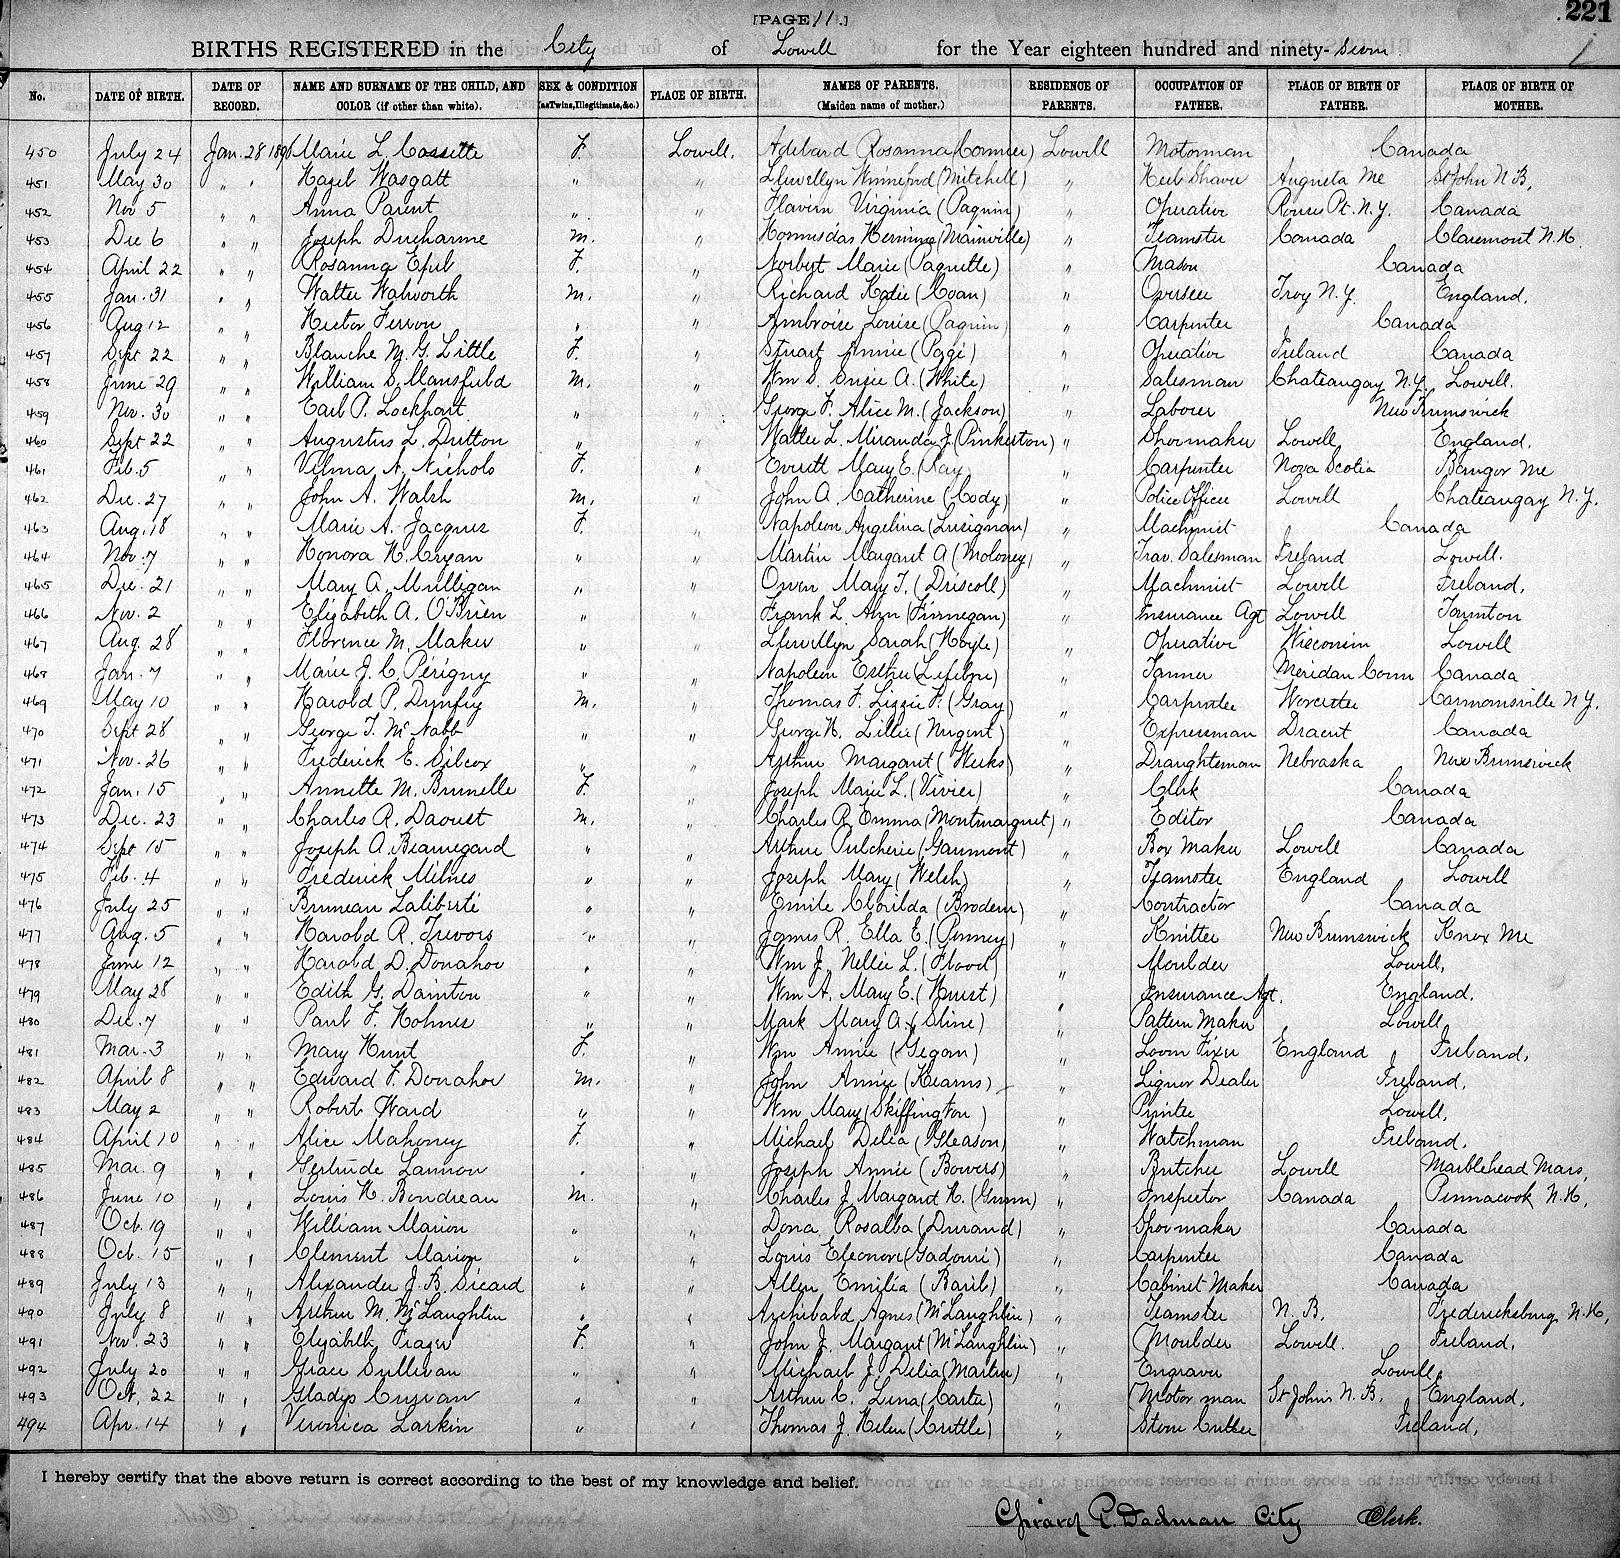 [PAGE 11.]
221
BIRTHS REGISTERED in the City of Lowell for the Year eighteen hundred and ninety-seven
No. DATE OF BIRTH. DATE OF RECORD. NAME AND SURNAME OF THE CHILD, AND COLOR (if other than white). SEX & CONDITION (as Twins, Illegitimate, &c.) PLACE OF BIRTH. NAMES OF PARENTS. (Maiden name of mother.) RESIDENCE OF PARENTS. OCCUPATION OF FATHER. PLACE OF BIRTH OF FATHER. PLACE OF BIRTH OF MOTHER.
450 July 24 Jan. 28 189 Marie L. Cossette F. Lowell. Adelard Rosanna (Cormier) Lowell Motorman Canada
451 May 30 " " Hazel Wasgatt " " Llewellyn Winnefred (Mitchell) " Augusta Me St John N.B.
452 Nov 5 " " Anna Parent " " Virginia (Paquin) " Operative Rouse Pt. N.Y. Canada
453 Dec 6 " " Joseph Ducharme M. " Hormisdas (Mainville) " Teamster Canada Claremont N.H.
454 April 22 " " Rosanna F. " Norbert Marie (Paquette) " Mason Canada
455 Jan. 31 " " Walter Walworth M. " Richard Katie (Coan) " Overseer Troy N.Y. England.
456 Aug 12 " " Hector Ferron " " Ambroise Louise (Paquin) " Carpenter Canada
457 Sept 22 " " Blanche M. G. Little F. " Stuart Annie (Page) " Operative Ireland Canada
458 June 29 " " William S. Mansfield M. " Wm S. Susie A. (White) " Salesman Chateaugay N.Y. Lowell.
459 Nov. 30 " " Earl P. Lockhart " " George F. Alice M. (Jackson) " Laborer New Brunswick
460 Sept 22 " " Augustus L. Dutton " " Walter L. Miranda J. (Pinkerton) " Shoemaker Lowell England.
461 Feb. 5 " " Vilma A. Nichols F. " Everett Mary E. (Kay) " Carpenter Nova Scotia Bangor Me
462 Dec. 27 " " John A. Walsh M. " John A. Catherine (Cody) " Police Officer Lowell Chateaugay N.Y.
463 Aug. 18 " " Marie A. Jacques F. " Napoleon Angelina (Lusignan) " Machinist Canada
464 Nov. 7 " " Honora H. Crean " " Martin Margaret A (Moloney) " Trav. Salesman Ireland Lowell.
465 Dec. 21 " " Mary A. Mulligan " " Owen Mary T. (Driscoll) " Machinist Lowell Ireland.
466 Nov. 2 " " Elizabeth A. O'Brien " " Frank L. Ann (Finnegan) " Insurance Agt Lowell Taunton
467 Aug. 28 " " Florence M. Maker " " Llewellyn Sarah (Hoyle) " Operative Wisconsin Lowell
468 Jan. 7 " " Marie J. C. Perigny " " Napoleon Esther (Lefebre) " Tanner Meridan Conn Canada
469 May 10 " " Harold P. Dunfey M. " Thomas F. Lizzie F. (Gray) " Carpenter Worcester Cannonsville N.Y.
470 Sept 28 " " George T. McNabb " " George H. Lillie (Nugent) " Expressman Dracut Canada
471 Nov. 26 " " Frederick E. Silcox " " Arthur Margaret (Weeks) " Draughtsman Nebraska New Brunswick
472 Jan. 15 " " Annette M. Brunelle F. " Joseph Marie L. (Vivier) " Clerk Canada
473 Dec. 23 " " Charles A. Daoust M. " Charles R. Emma (Montmarquet) " Editor Canada
474 Sept 15 " " Joseph A. Beauregard " " Arthur Pulcherie (Gaumont) " Box Maker Lowell Canada
475 Feb. 4 " " Frederick Milnes " " Joseph Mary (Welch) " Teamster England Lowell
476 July 25 " " Bruneau Laliberté " " Emile Clorilda (Brodeur) " Contractor Canada
477 Aug. 5 " " Harold R. Trevors " " James R. Ella E. (Penney) " Knitter New Brunswick Knox Me
478 June 12 " " Harold D. Donahoe " " Wm J. Nellie L. (Flood) " Moulder Lowell.
479 May 28 " " Edith G. Dainton " " Wm A. Mary E. (Hurst) " Insurance Agt. England.
480 Dec. 7 " " Paul F. Holmes " " Mark Mary A. (Sline) " Pattern Maker Lowell
481 Mar. 3 " " Mary Hunt F. " Wm Annie (Gegan) " Loom Fixer England Ireland.
482 April 8 " " Edward F. Donahoe M. " John Annie (Kearns) " Liquor Dealer Ireland.
483 May 2 " " Robert Ward " " Wm Mary (Skiffington) " Printer Lowell.
484 April 10 " " Alice Mahoney F. " Michael Delia (Gleason) " Watchman Ireland.
485 Mar. 9 " " Gertrude Lannon " " Joseph Annie (Bowers) " Butcher Lowell Marblehead Mass.
486 June 10 " " Louis H. Boudreau M. " Charles J. Margaret H. (Gunn) " Inspector Canada Pennacook N.H.
487 Oct. 19 " " William Marion " " Dona Rosalba (Durand) " Shoemaker Canada
488 Oct. 15 " " Clement Marion " " Louis Eleonore (Gadouri) " Carpenter Canada
489 July 13 " " Alexander J. B. Sicard " " Allen Emilia (Baril) " Cabinet Maker Canada
490 July 8 " " Arthur M. McLaughlin " " Archibald Agnes (McLaughlin) " Teamster N.B. Fredericksburg N.H.
491 Nov. 23 " " Elizabeth Frazer F. " John J. Margaret (McLaughlin) " Moulder Lowell. Ireland.
492 July 20 " " Grace Sullivan " " Michael J. Delia (Martin) " Engraver Lowell.
493 Oct. 22 " " Gladys Curran " " Arthur C. Lena (Carter) " Motor man St Johns N.B. England.
494 Apr. 14 " " Veronica Larkin " " Thomas J. Helen (Cuttle) " Stone Cutter Ireland.
I hereby certify that the above return is correct according to the best of my knowledge and belief.
Girard P. Dadman City Clerk.